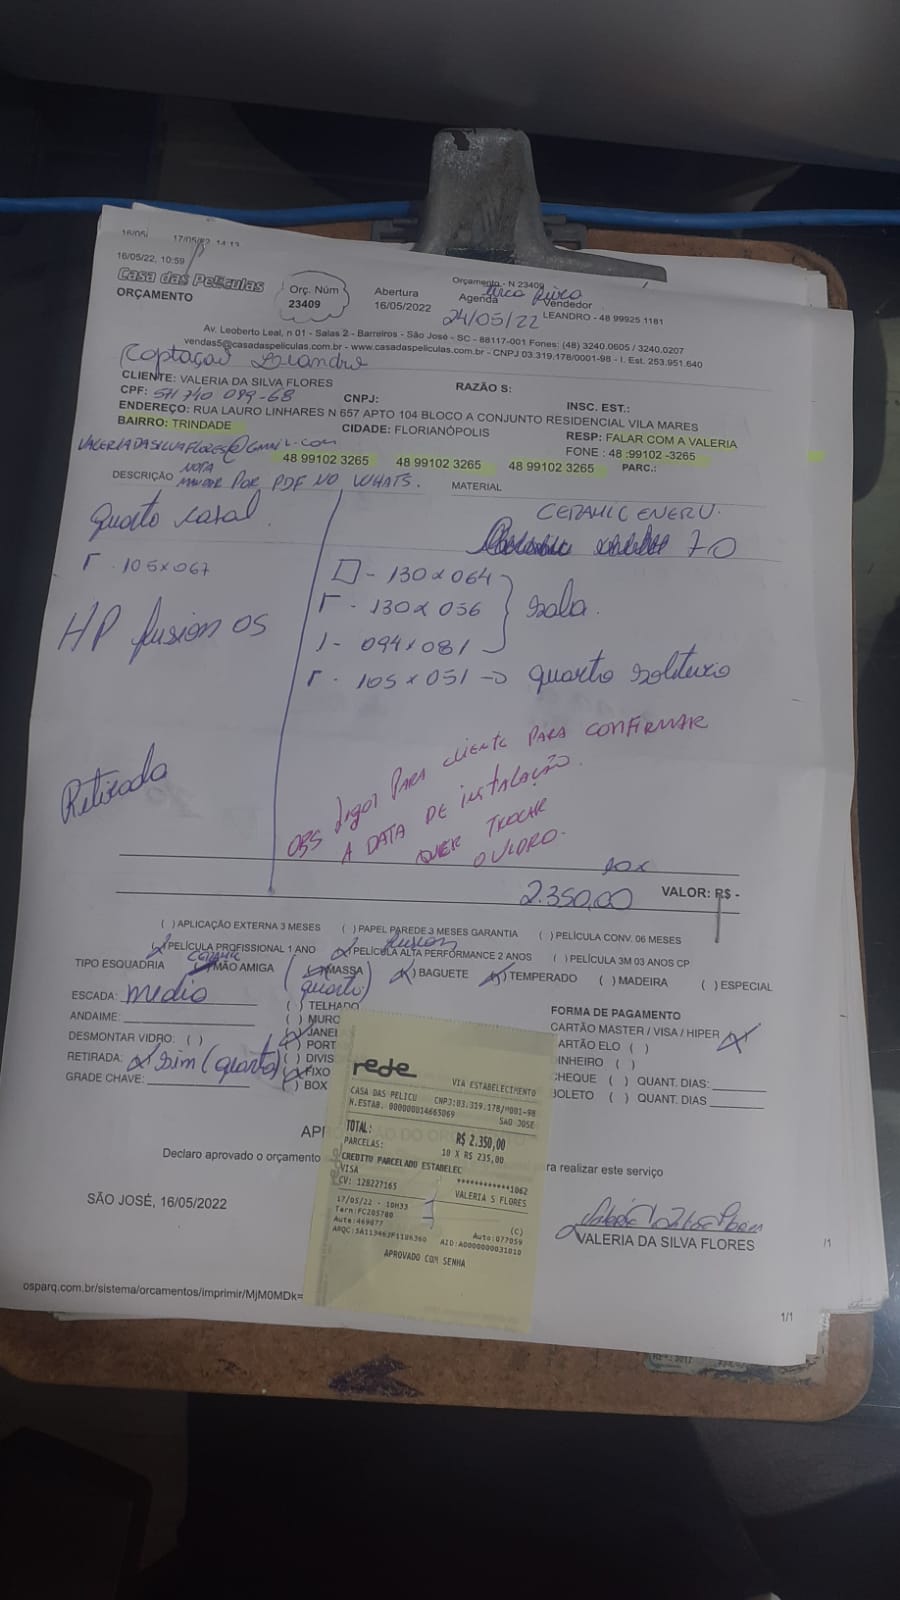 16/05/ 17/05/22, 14:13
16/05/22, 10:59
Orçamento - N 23409
Casa das Películas
ORÇAMENTO
Orç. Núm
23409
Abertura
16/05/2022
Agenda
24/05/22
Vendedor
LEANDRO - 48 99925 1181
Av. Leoberto Leal, n 01 - Salas 2 - Barreiros - São José - SC - 88117-001 Fones: (48) 3240.0605 / 3240.0207
vendas5@casadaspeliculas.com.br - www.casadaspeliculas.com.br - CNPJ 03.319.178/0001-98 - I. Est. 253.951.640
Captação Leandro
CLIENTE: VALERIA DA SILVA FLORES
RAZÃO S:
CPF: 571 740 099-68
CNPJ:
INSC. EST.:
ENDEREÇO: RUA LAURO LINHARES N 657 APTO 104 BLOCO A CONJUNTO RESIDENCIAL VILA MARES
BAIRRO: TRINDADE
CIDADE: FLORIANÓPOLIS
RESP: FALAR COM A VALERIA
VALERIADASILVAFLORES@GMAIL.COM
FONE : 48 :99102 -3265
48 99102 3265 48 99102 3265 48 99102 3265 PARC.:
DESCRIÇÃO NOTA MANDAR POR PDF NO WHATS.
MATERIAL
Quarto casal
CERAMIC ENERU.
70
105x067
130x064
130x056
sala.
HP fusion 05
094x081
105x051 → quarto solteiro
Retirada
OBS LIGAR PARA CLIENTE PARA CONFIRMAR
A DATA DE INSTALAÇÃO.
QUER TROCAR
O VIDRO.
10x
2.350,00 VALOR: R$ -
( ) APLICAÇÃO EXTERNA 3 MESES ( ) PAPEL PAREDE 3 MESES GARANTIA ( ) PELÍCULA CONV. 06 MESES
fusion
(x) PELÍCULA PROFISSIONAL 1 ANO (x) PELÍCULA ALTA PERFORMANCE 2 ANOS ( ) PELÍCULA 3M 03 ANOS CP
ceramic
TIPO ESQUADRIA MÃO AMIGA (x) MASSA (x) BAGUETE (x) TEMPERADO ( ) MADEIRA ( ) ESPECIAL
(quarto)
ESCADA: medio
( ) TELHADO
FORMA DE PAGAMENTO
ANDAIME:
( ) MURO
CARTÃO MASTER / VISA / HIPER (x)
DESMONTAR VIDRO: ( )
(x) JANEL
ARTÃO ELO ( )
RETIRADA: (x) Sim (quarto)
( ) PORT
INHEIRO ( )
( ) DIVIS
HEQUE ( ) QUANT. DIAS:
GRADE CHAVE:
(x) FIXO
OLETO ( ) QUANT. DIAS
( ) BOX
rede
VIA ESTABELECIMENTO
CASA DAS PELICU CNPJ:03.319.178/0001-98
N.ESTAB. 000000014665069 SAO JOSE
TOTAL: R$ 2.350,00
PARCELAS: 10 X R$ 235,00
CREDITO PARCELADO ESTABELEC
VISA ************1062
CV: 128227165 VALERIA S FLORES
17/05/22 - 10H33 (C)
Term:FC205780 Auto:077059
Aute:469877
ARQC:5A113463F1186360 AID:A0000000031010
APROVADO COM SENHA
Declaro aprovado o orçamento
ra realizar este serviço
SÃO JOSÉ, 16/05/2022
VALERIA DA SILVA FLORES
/1
osparq.com.br/sistema/orcamentos/imprimir/MjM0MDk=
1/1